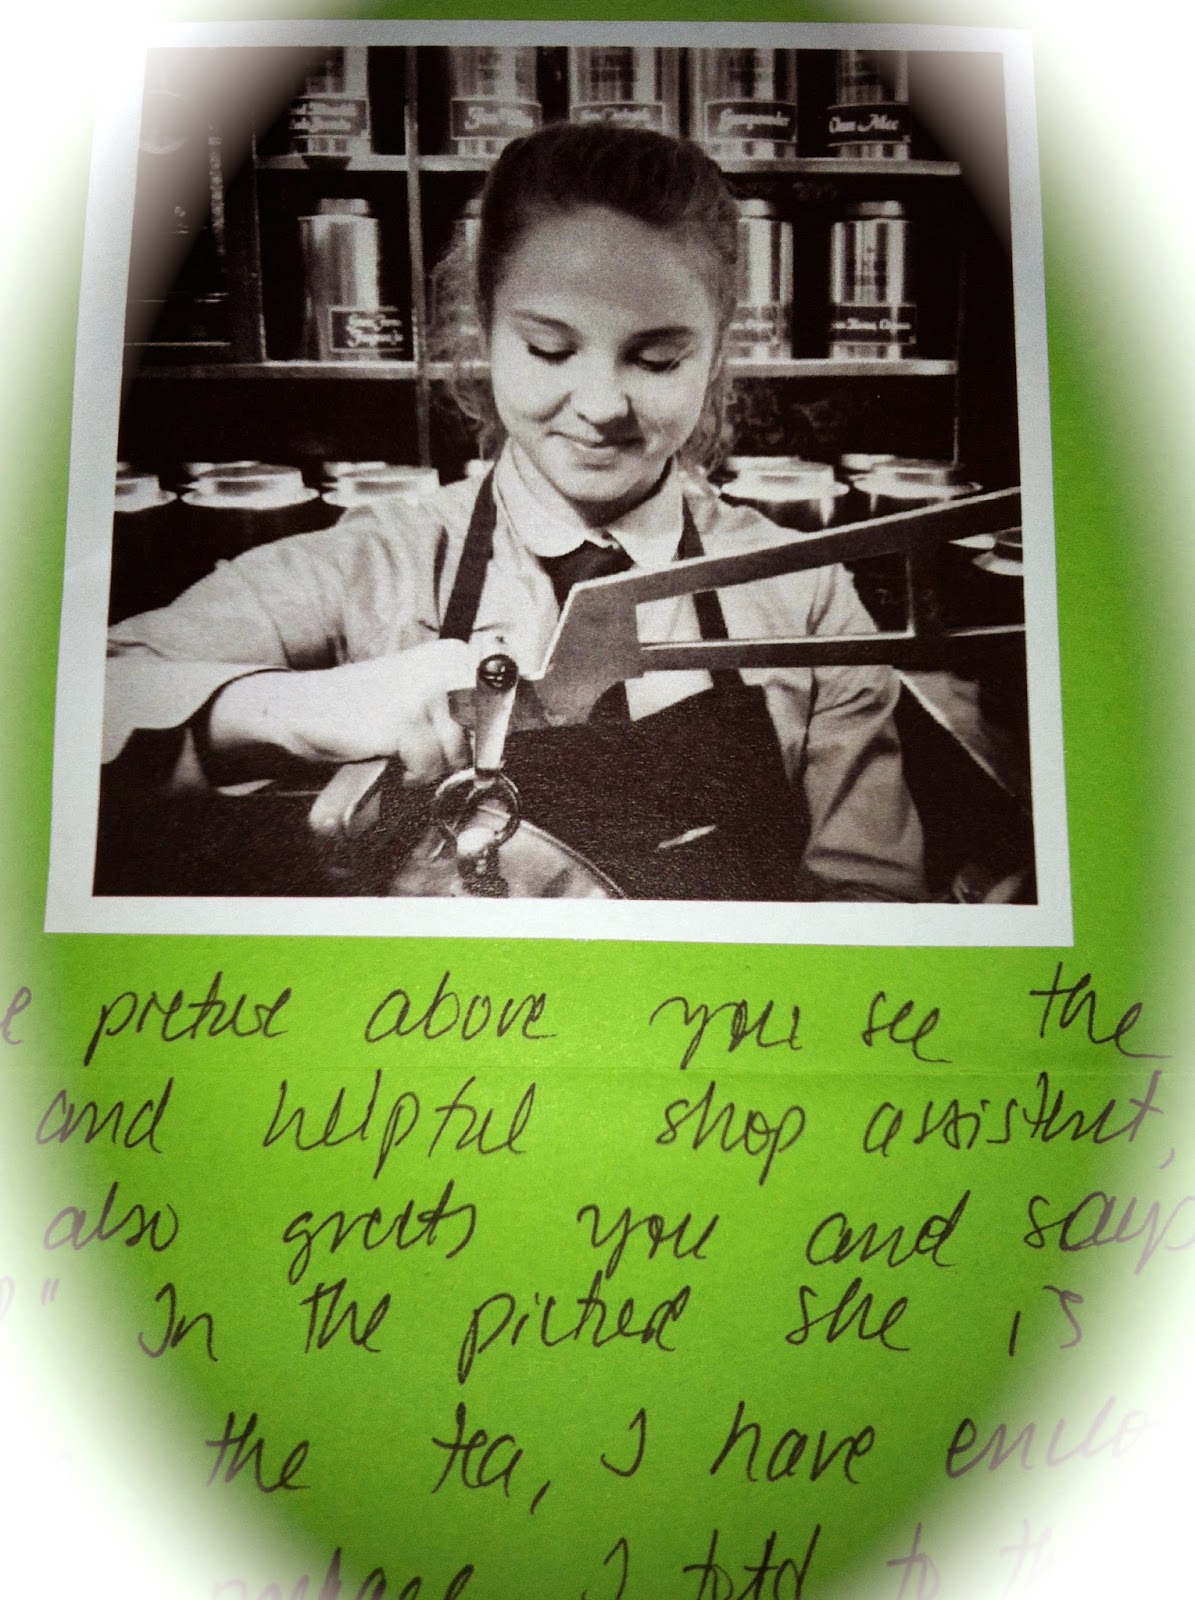 Gunpowder
Chun Mee
e picture above you see the
and helpful shop assistent,
also greets you and says
" In the picture she is
the tea, I have enclo
I told to th